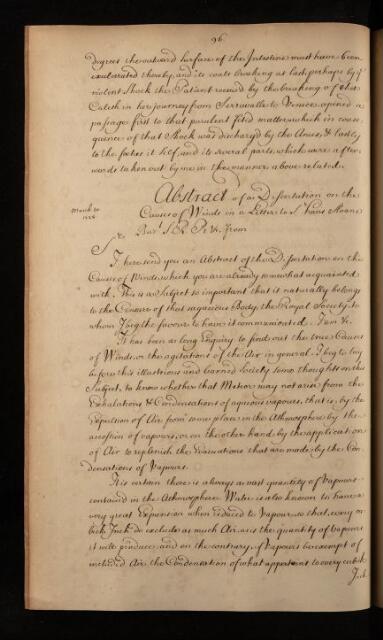 96
degrees the outward Surface of the Intestine must have been
exulcerated thereby, and its coats breaking at last perhaps by ye
violent Shock the Patient receiv'd by the breaking of that
Calesh in her journey from Serravalle to Venice, opened a
passage first to that purulent fetid matter, which in conse
quence of that Shock was discharg'd by the Anus, & lastly
to the foetus it self, and its several parts, which were after-
wards taken out by me in the manner above related.
Abstract of a Dissertation on the
Causes of Winds in a Letter to Sr Hans Sloane
Bart. P. R. &c. from
March 20
Sr
I here send you an Abstract of the Dissertation on the
Causes of Winds, which you are already somewhat acquainted
with. This is a Subject so important that it naturally belongs
to the Censure of that sagacious Body, the Royal Society, to
whom I beg the favour to have it communicated. I am &c.
It has been a long Enquiry to find out the true Causes
of Winds, or the agitations of the Air in general. I beg to lay
before this illustrious and learned Society some thoughts on this
Subject, to know whether that Motion may not arise from the
Exhalations & Condensations of aqueous vapours, that is, by the
Expulsion of Air from some place in the Athmosphere by the
accession of vapours, or on the other hand by the application
of Air to replenish the Evacuations that are made by the Con-
densations of Vapours.
It is certain there is always a vast quantity of Vapours
contain'd in the Athmosphere. Water is also known to have a
very great Expansion when reduced to Vapour, so that, every cu
bick Inch do exclude as much Air, as is the quantity of Vapours
it will produce, and on the contrary, if Vapours be exempt of
included Air the Condensation of what appertent to every cubick
Inch